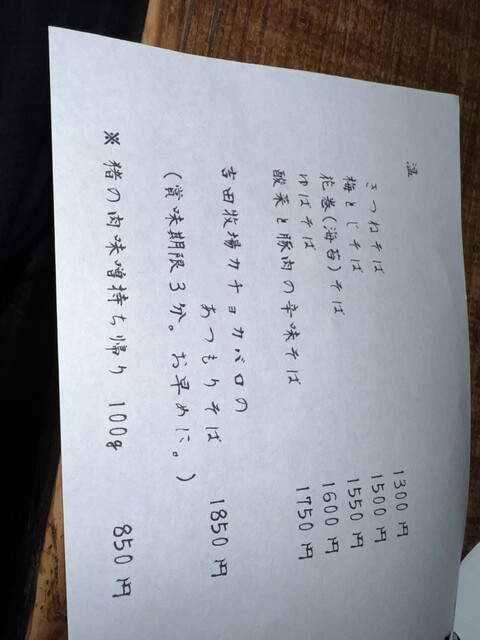 温
きつねそば 1300円
梅とじそば 1500円
花巻(海苔)そば 1550円
ゆばそば 1600円
酸菜と豚肉の辛味そば 1750円
吉田牧場カチョカバロの
あつもりそば 1850円
(賞味期限3分。お早めに。)
※ 猪の肉味噌持ち帰り 100g 850円